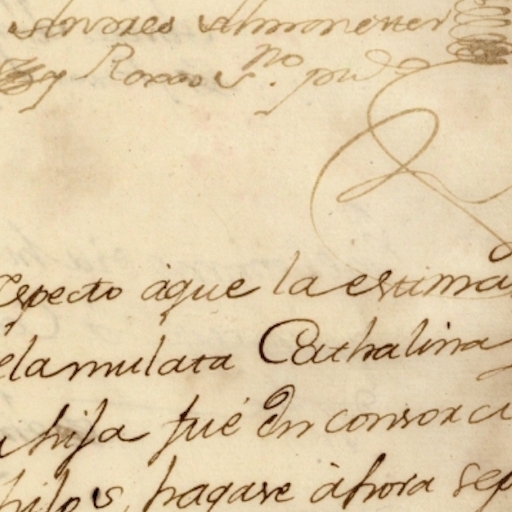 Andres Almonester
y Roxas S.no pu.co
especto áque la estima
elamulata Cathalina
u hija fué En consorci
hilos, pagase àhora sep